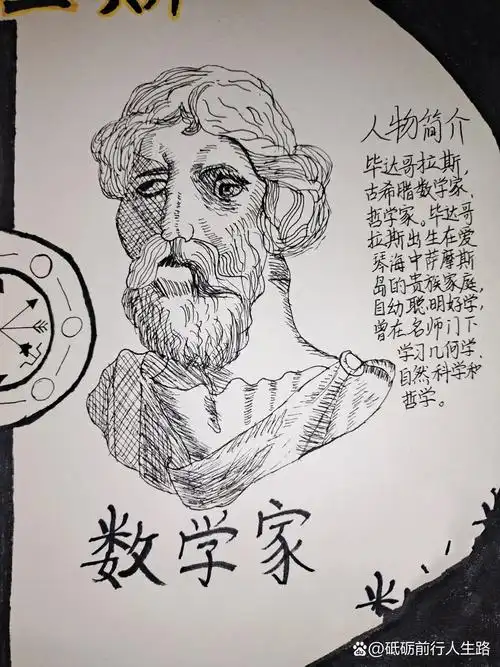 人物简介
毕达哥拉斯，
古希腊数学家、
哲学家。毕达哥
拉斯出生在爱
琴海中萨摩斯
岛的贵族家庭，
自幼聪明好学，
曾在名师门下
学习几何学、
自然科学和
哲学。
数学家
@砥砺前行人生路